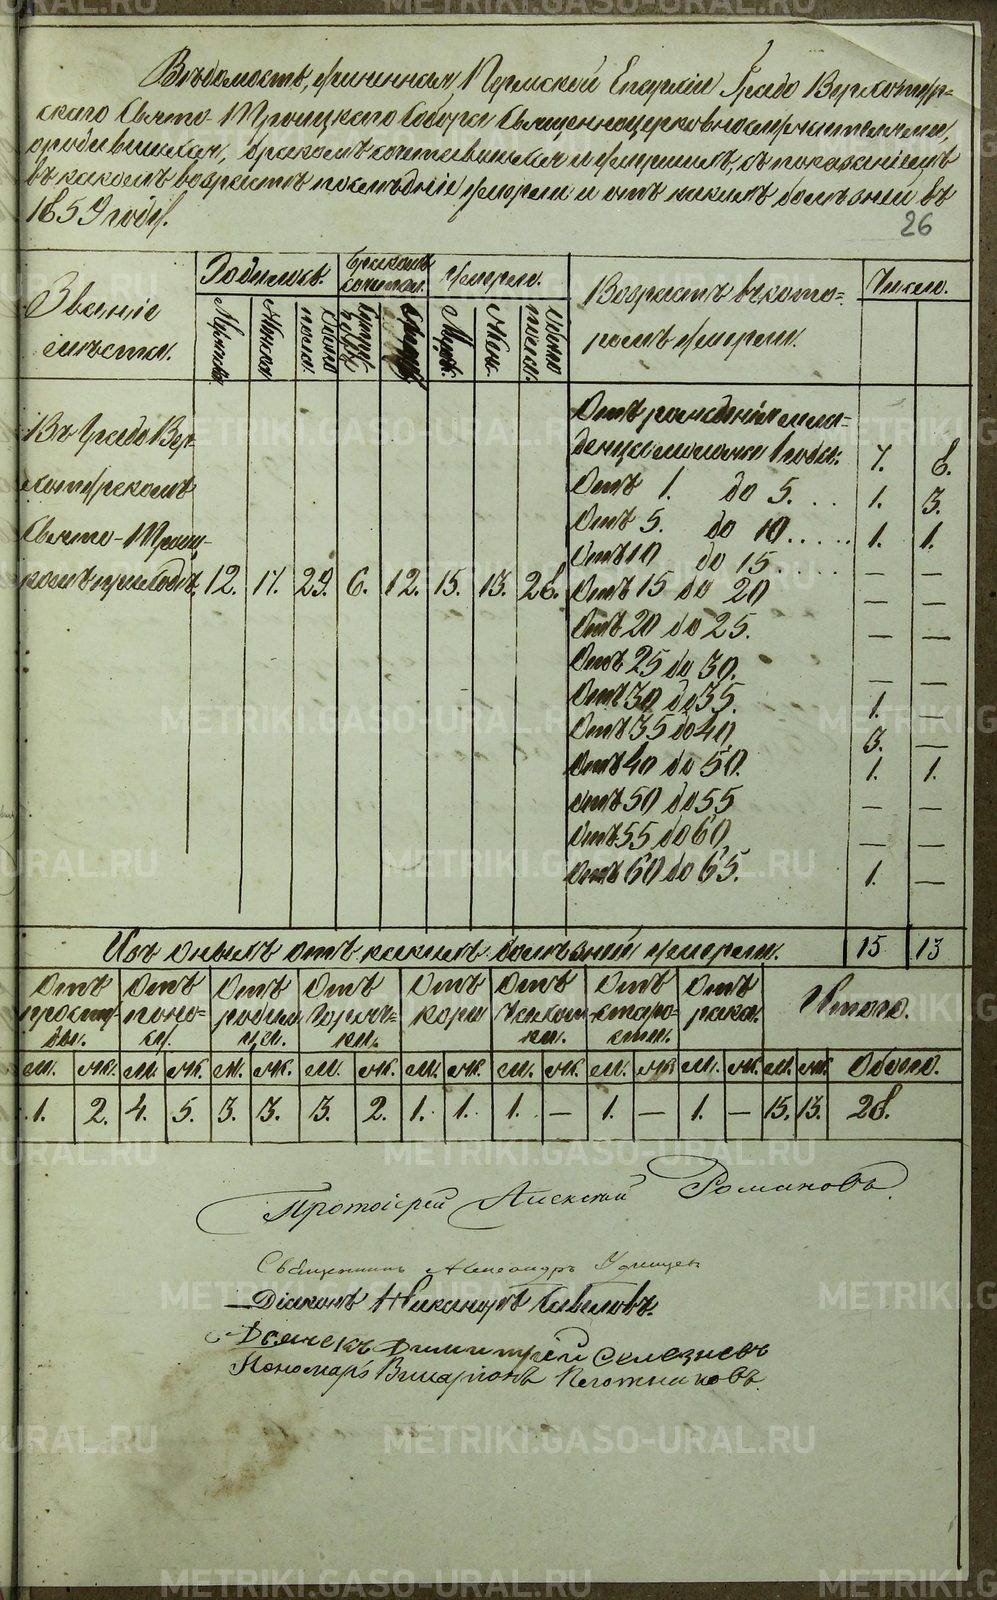 Вѣдомость, учиненная Пермской Епархіи Градо Верхотур-
скаго Свято-Троицкаго Собора Священноцерковнослужителями,
о родившихся, бракомъ сочетавшихся и умершихъ, съ показаніемъ
въ какомъ возрастѣ послѣдніе умерли и отъ какихъ болѣзней въ
1859 году.
26
Званіе и мѣста.
Родилось.
Бракомъ сочетал.
Умерло.
Возрастъ въ кото-
ромъ умерли.
Число.
Мужеска
Женска
Обоего пола.
Бракосоч.
Муж.
Жен.
Обоего пола.
Въ Градо Вер-
хотурскомъ
Свято-Троиц-
комъ приходѣ.
12. 17. 29. 6. 12. 15. 13. 28.
Отъ рожденія мла-
денцами менѣе 1 года. 7. 8.
Отъ 1. до 5. . . . 1. 3.
Отъ 5. до 10 . . . . . 1. 1.
Отъ 10 до 15. . . . . — —
Отъ 15 до 20 — —
Отъ 20 до 25. — —
Отъ 25 до 30. — —
Отъ 30 до 35. 1. —
Отъ 35 до 40 3. —
Отъ 40 до 50. 1. 1.
Отъ 50 до 55 — —
Отъ 55 до 60 — —
Отъ 60 до 65. 1. —
Изъ оныхъ отъ какихъ болѣзней умерли. 15 13
Отъ просту-
ды.
Отъ поно-
са.
Отъ родим
ца.
Отъ Горяч-
ки.
Отъ кори
Отъ Чахот
ки.
Отъ старо-
сти.
Отъ рака.
Итого.
м. ж. м. ж. м. ж. м. ж. м. ж. м. ж. м. ж. м. ж. м. ж. Обоего.
1. 2. 4. 5. 3. 3. 3. 2. 1. 1. 1. — 1. — 1. — 15. 13. 28.
Протоіерей Алексѣй Романовъ.
Священникъ Александръ Удинцевъ
Діаконъ Никаноръ Вавиловъ.
Дьячекъ Димитрій Селезневъ
Пономарь Виссаріонъ Плотниковъ.
METRIKI.GASO-URAL.RU